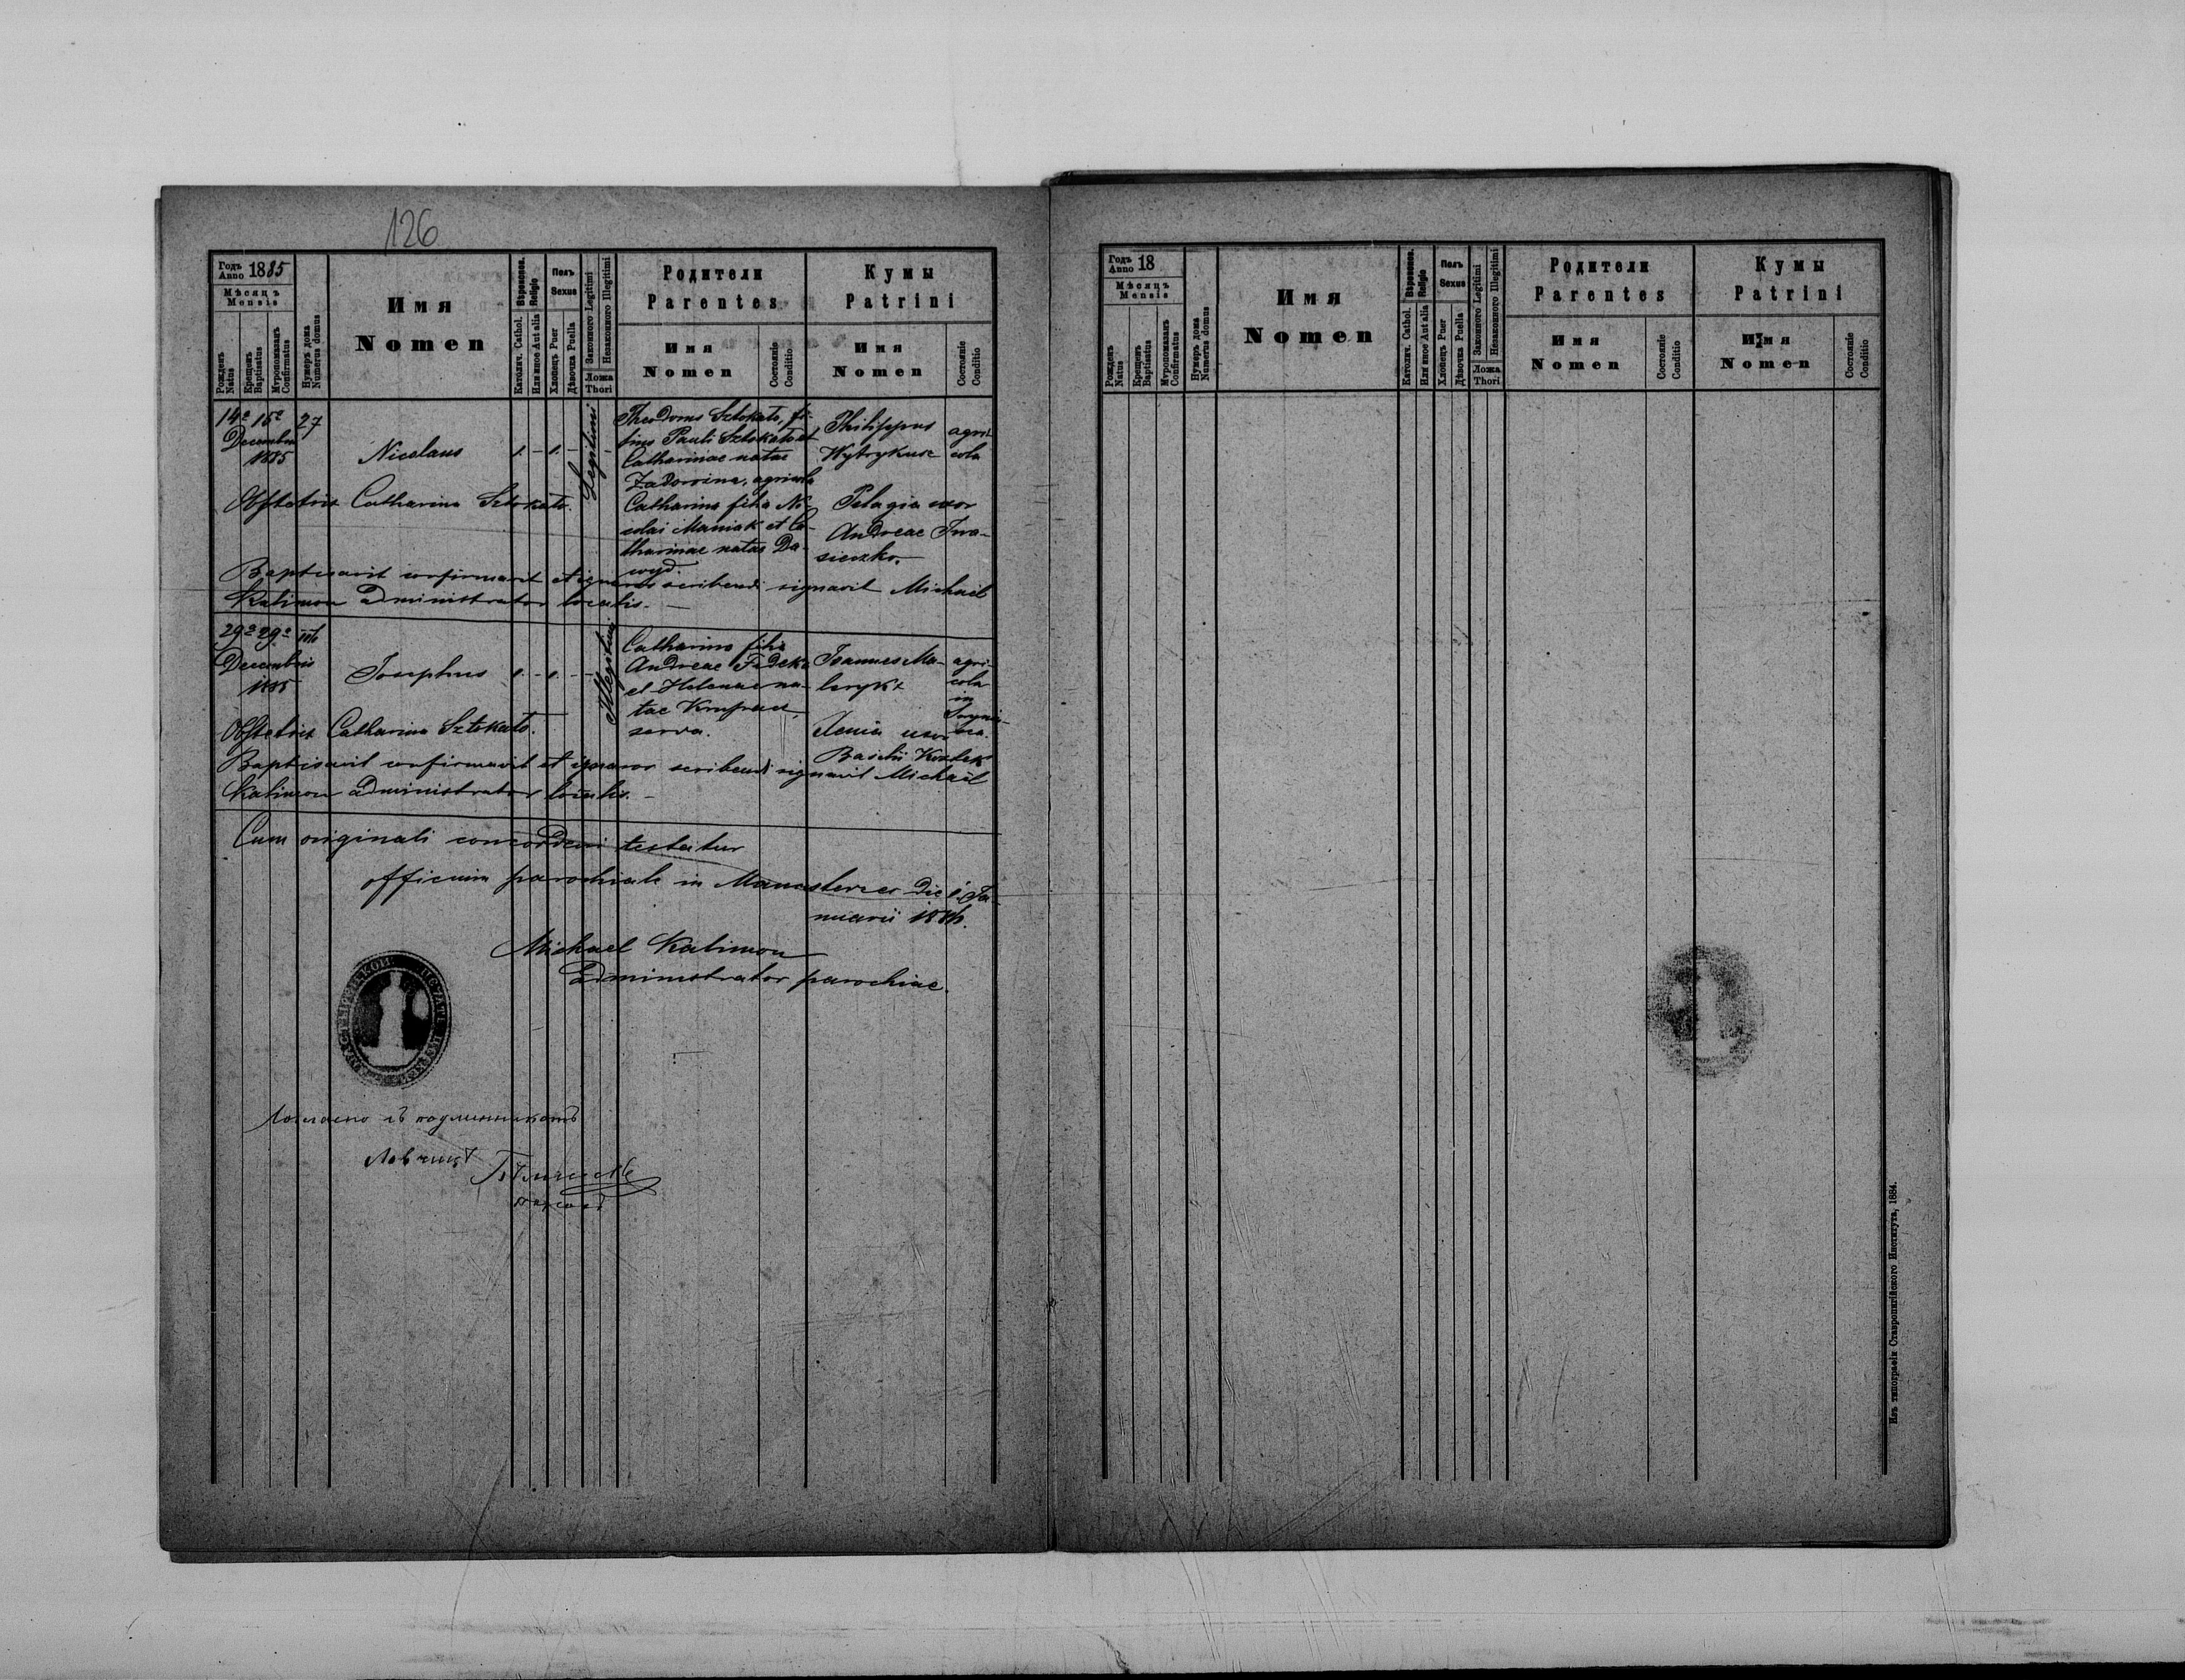 126
Годъ Anno 1885
Мѣсяцъ
Mensis
Рожденъ Natus
Крещенъ Baptisatus
Мѵропомазанъ Confirmatus
Нумеръ дома Numerus domus
Имя
Nomen
Вѣроисповѣд. Religio
Католич. Cathol.
Или иное Aut alia
Полъ
Sexus
Хлопецъ Puer
Дѣвочка Puella
Законного Legitimi
Незаконного Illegitimi
Ложа
Thori
Родители
Parentes
Имя
Nomen
Состояніе
Conditio
Кумы
Patrini
Имя
Nomen
Состояніе
Conditio
14a 15a 27
Decembris
1885
Nicolaus
1. - 1. -
Legitimi
Theodorus Sztokato, fi-
lius Pauli Sztokato et
Catharinae natae
agricola
Catharina filia Ni-
colai Maniak et Ca-
tharinae natae Da-
wyd.
Philippus
agri-
cola
Pelagia uxor
Andreae Iwa-
sieczko.
Obstetrix Catharina Sztokato.
Baptisavit confirmavit et ignaros scribendi signavit Michael
Kalimon administrator localis. -
29a 29a
Decembris
1885
Josephus
1. - 1. - -
Illegitimi
Catharina filia
Andreae
et Helenae na-
tae
serva.
Joannes Ma-
agri-
cola
in
Xenia uxor
Basilii Kozlek
Obstetrix Catharina Sztokato.
Baptisavit confirmavit et ignaros scribendi signavit Michael
Kalimon administrator localis. -
Cum originali concordare testatur
officium parochiale in die 1. Ja-
nuarii 1886.
Michael Kalimon
administrator parochiae.
Согласно съ подлинникомъ
Годъ Anno 18
Мѣсяцъ
Mensis
Рожденъ Natus
Крещенъ Baptisatus
Мѵропомазанъ Confirmatus
Нумеръ дома Numerus domus
Имя
Nomen
Вѣроисповѣд. Religio
Католич. Cathol.
Или иное Aut alia
Полъ
Sexus
Хлопецъ Puer
Дѣвочка Puella
Законного Legitimi
Незаконного Illegitimi
Ложа
Thori
Родители
Parentes
Имя
Nomen
Состояніе
Conditio
Кумы
Patrini
Имя
Nomen
Состояніе
Conditio
Изъ типографіи Ставропигійского Института, 1884.